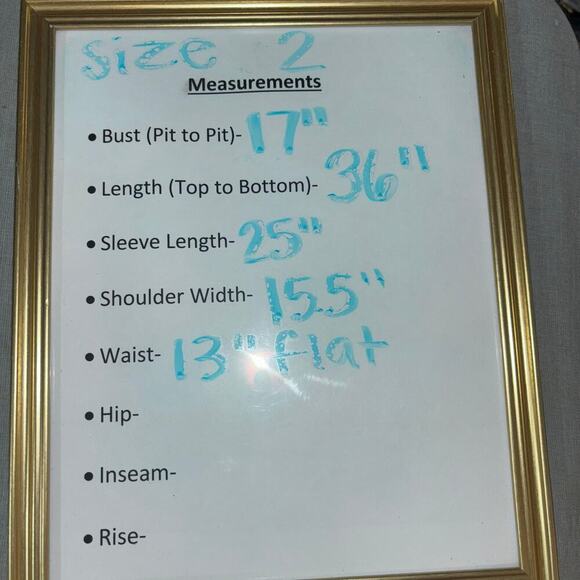 Size 2
Measurements
• Bust (Pit to Pit)- 17"
• Length (Top to Bottom)- 36"
• Sleeve Length- 25"
• Shoulder Width- 15.5"
• Waist- 13" flat
• Hip-
• Inseam-
• Rise-